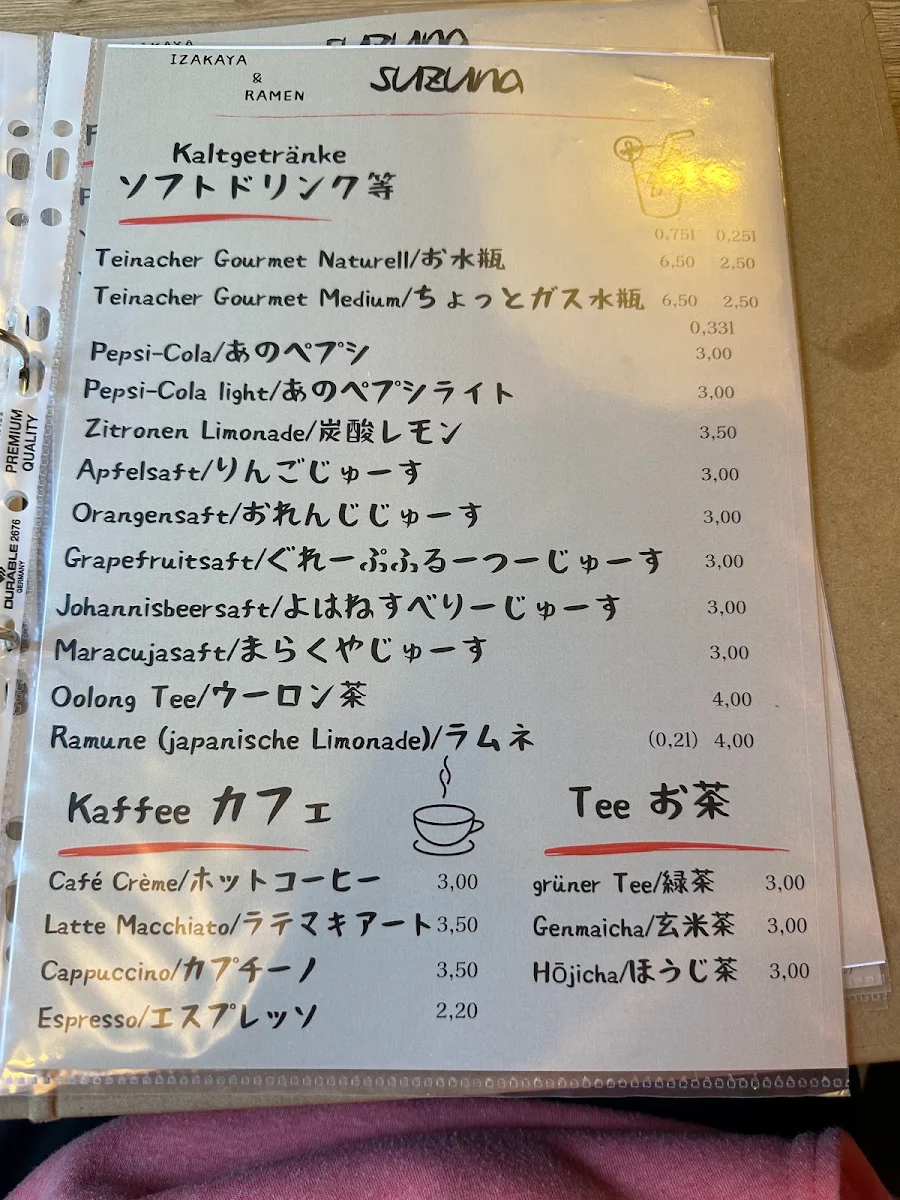 IZAKAYA
&
RAMEN
suzuna
Kaltgetränke
ソフトドリンク等
0,75l 0,25l
Teinacher Gourmet Naturell/お水瓶 6,50 2,50
Teinacher Gourmet Medium/ちょっとガス水瓶 6,50 2,50
0,33l
Pepsi-Cola/あのペプシ 3,00
Pepsi-Cola light/あのペプシライト 3,00
Zitronen Limonade/炭酸レモン 3,50
Apfelsaft/りんごじゅーす 3,00
Orangensaft/おれんじじゅーす 3,00
Grapefruitsaft/ぐれーぷふるーつーじゅーす 3,00
Johannisbeersaft/よはねすべりーじゅーす 3,00
Maracujasaft/まらくやじゅーす 3,00
Oolong Tee/ウーロン茶 4,00
Ramune (japanische Limonade)/ラムネ (0,2l) 4,00
Kaffee カフェ
Café Crème/ホットコーヒー 3,00
Latte Macchiato/ラテマキアート 3,50
Cappuccino/カプチーノ 3,50
Espresso/エスプレッソ 2,20
Tee お茶
grüner Tee/緑茶 3,00
Genmaicha/玄米茶 3,00
Hōjicha/ほうじ茶 3,00
PREMIUM
QUALITY
DURABLE 2676
GERMANY